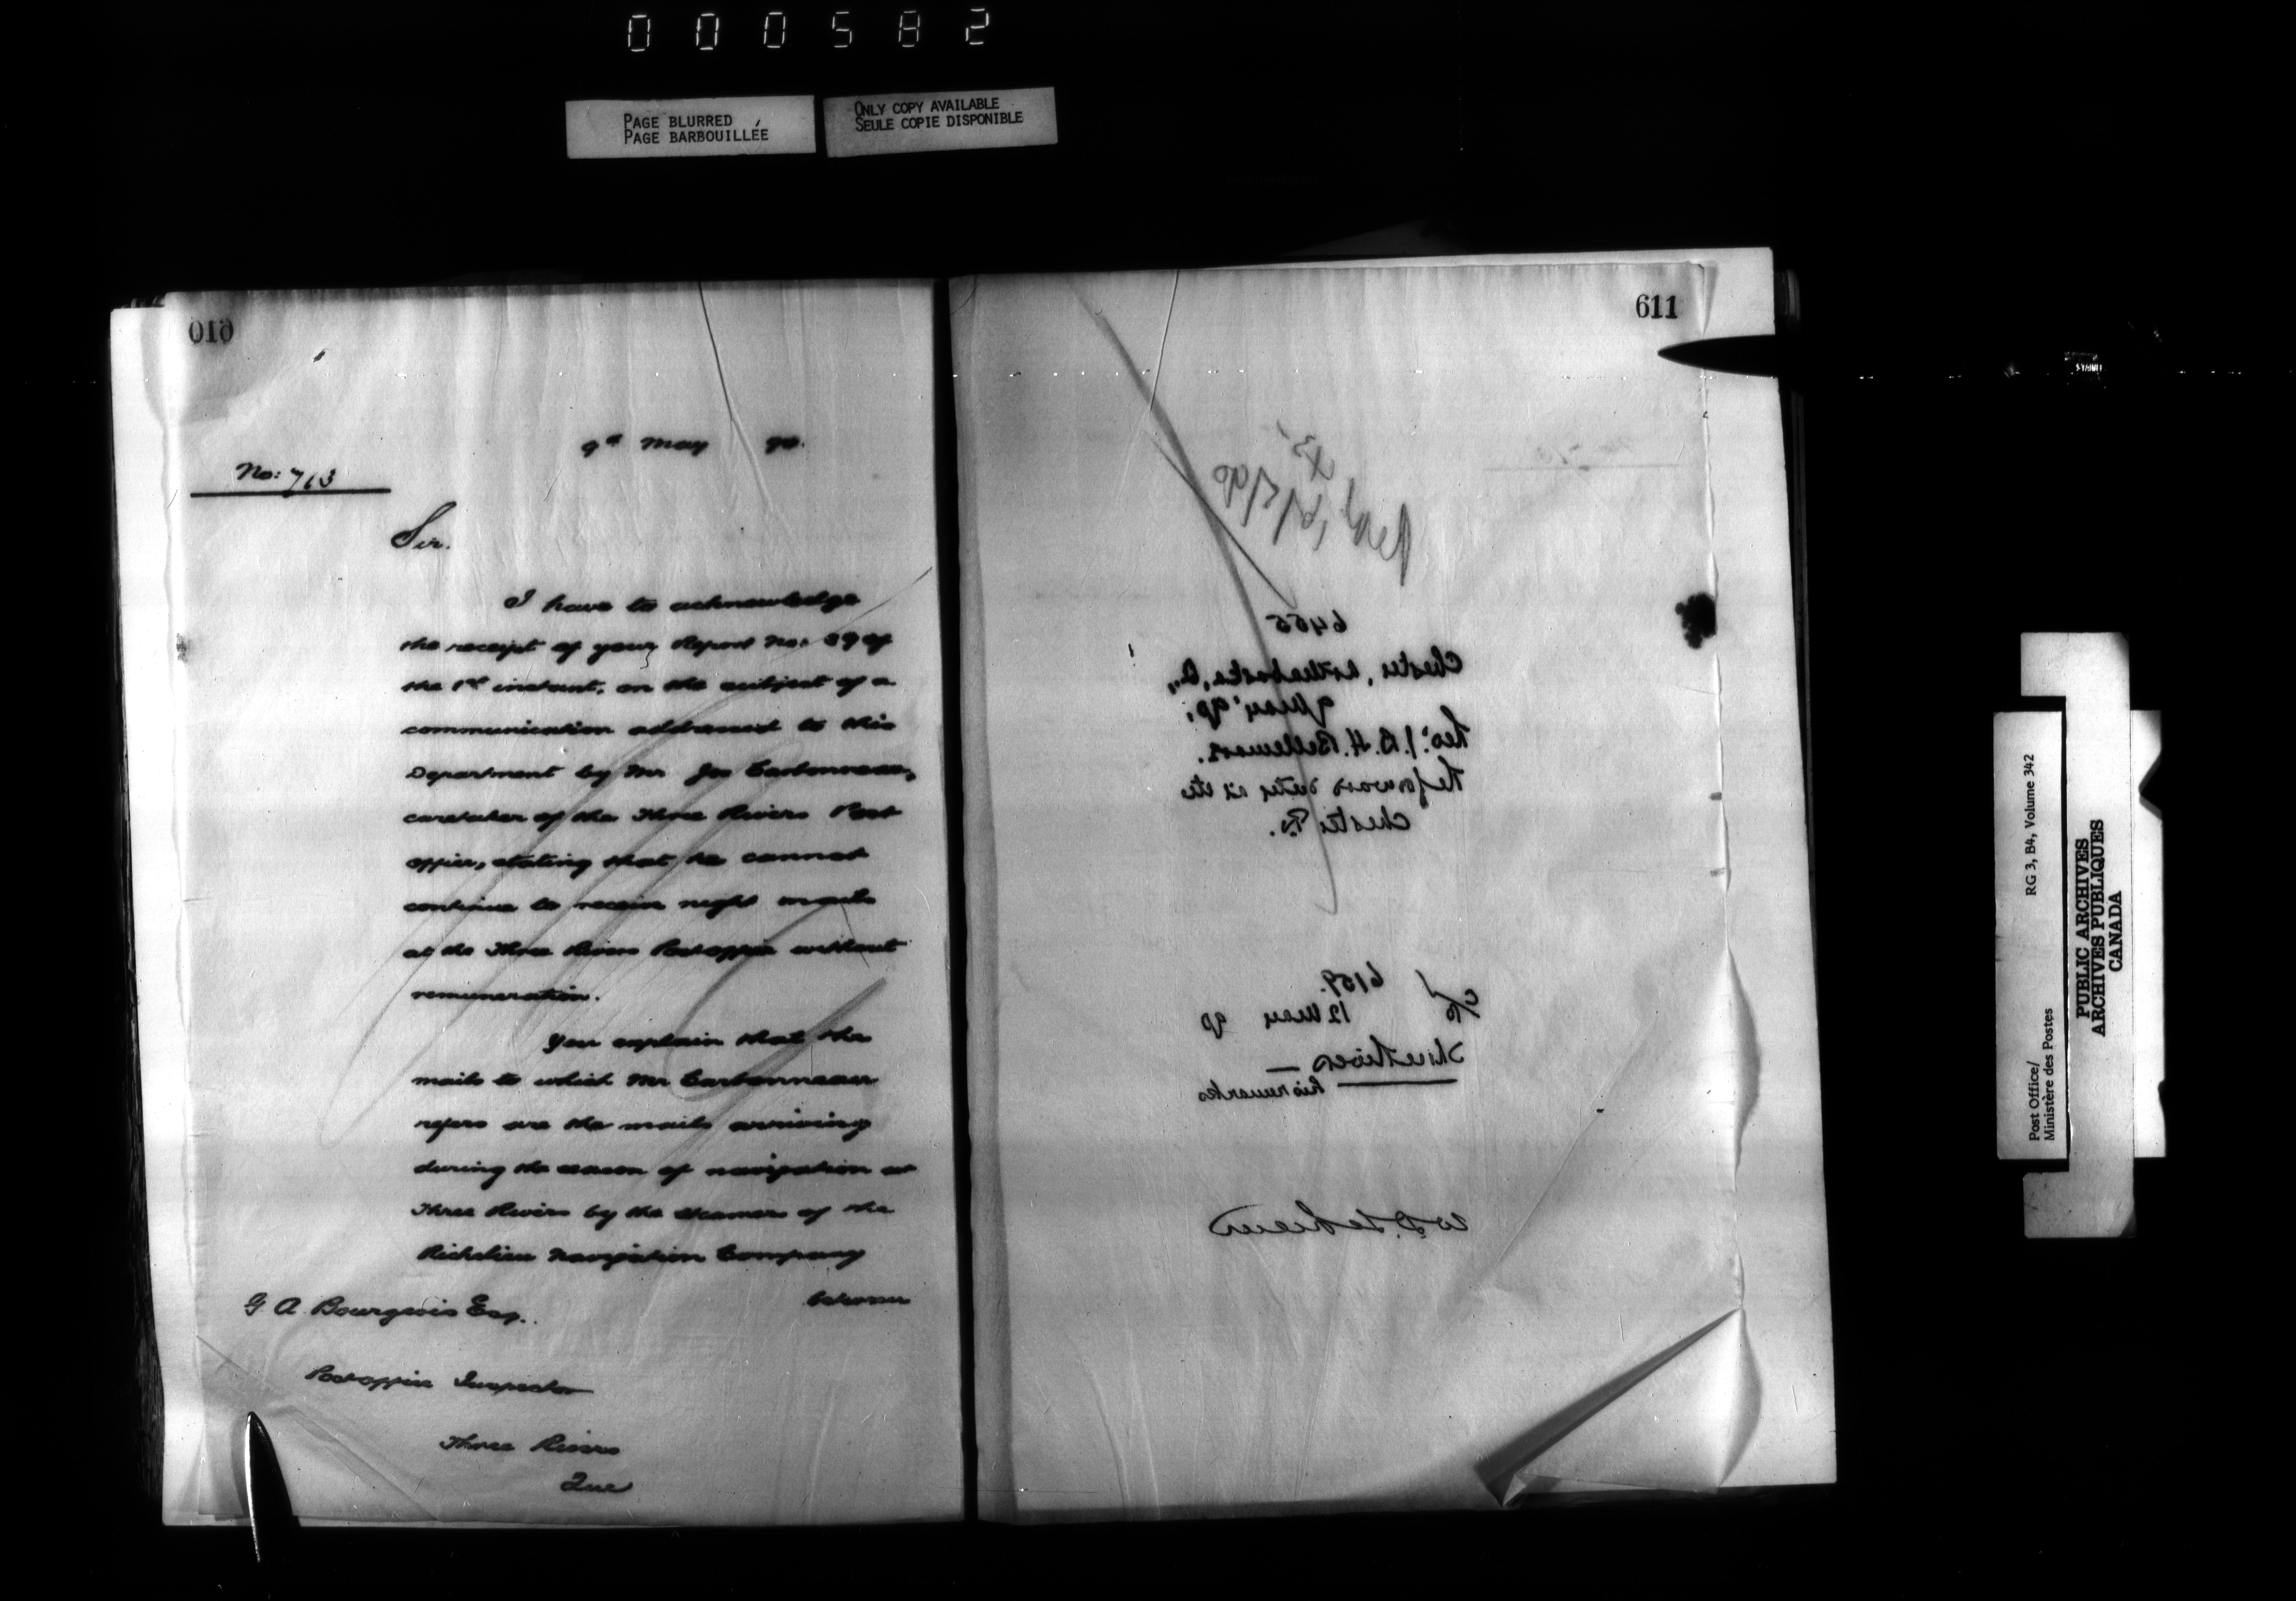 000582
PAGE BLURRED
PAGE BARBOUILLÉE
ONLY COPY AVAILABLE
SEULE COPIE DISPONIBLE
610
9th May 90.
No: 713
Sir.
I have to acknowledge
the receipt of your Report No: 39 of
the 1st instant, on the subject of a
communication addressed to this
Department by Mr Jos Carbonneau,
caretaker of the Three Rivers Post
office, stating that he cannot
continue to receive night mails
at the Three Rivers Postoffice without
remuneration.
You explain that the
mails to which Mr Carbonneau
refers are the mails arriving
during the season of navigation at
Three Rivers by the steamers of the
Richelieu Navigation Company
between
G. A. Bourgeois Esq.
Postoffice Inspector
Three Rivers
Que
611
6455
Chester, Arthabaska, Q.,
9 May 90.
J. B. H. Bellemare.
Chester
c/o 6159.
12 May 90
Three Rivers
his remarks
W D. LeSueur
Post Office/
Ministère des Postes
RG 3, B4, Volume 342
PUBLIC ARCHIVES
ARCHIVES PUBLIQUES
CANADA